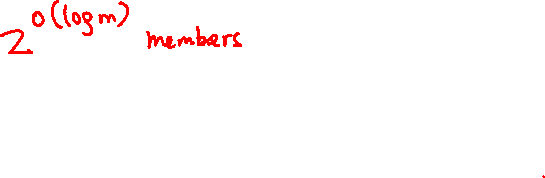 2^{O(log m)} members